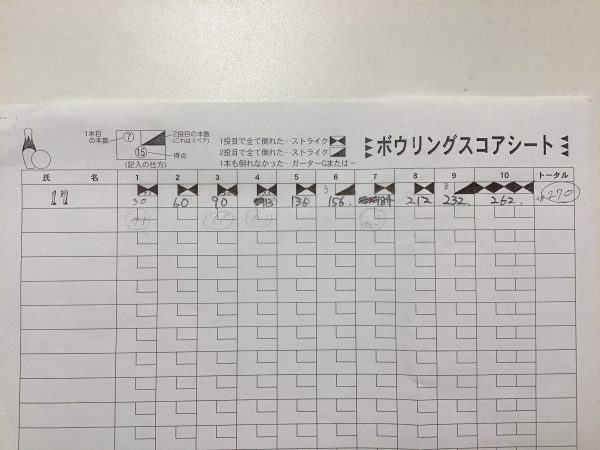 1本目の本数 7 2投目の本数
(これはスペア)
15 得点
(記入の仕方)
1投目で全て倒れた…ストライク
2投目で全て倒れた…ストライク
1本も倒れなかった…ガーターGまたはー
ボウリングスコアシート
氏 名 1 2 3 4 5 6 7 8 9 10 トータル
3 8
17 30 60 90 136 156. 184 212 232. 262. 270